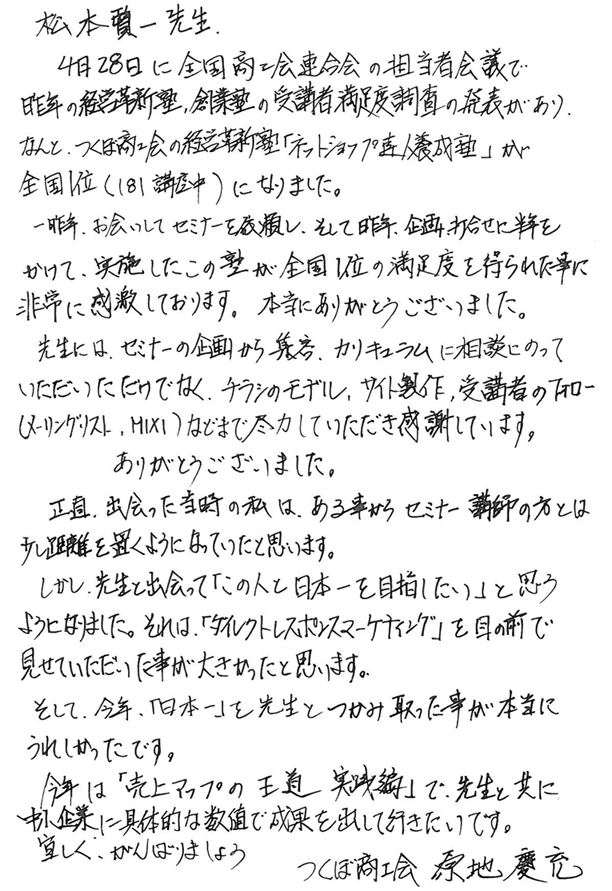 松本賢一先生.
4月28日に全国商工会連合会の担当者会議で
昨年の経営革新塾,創業塾の受講者満足度調査の発表があり,
なんと、つくば商工会の経営革新塾「ネットショップ達人養成塾」が
全国1位(181講座中)になりました。
一昨年、お会いしてセミナーを依頼し、そして昨年、企画、打合せに半年を
かけて、実施したこの塾が全国1位の満足度を得られた事に
非常に感激しております。本当にありがとうございました。
先生には、セミナーの企画から集客、カリキュラムに相談にのって
いただいただけでなく、チラシのモデル,サイト製作,受講者のフォロー
(メーリングリスト,MIXI)などまで尽力していただき感謝しています。
ありがとうございました。
正直、出会った当時の私は、ある事からセミナー講師の方とは
少し距離を置くようになっていたと思います。
しかし、先生と出会って「この人と日本一を目指したい」と思う
ようになりました。それは、「ダイレクトレスポンスマーケティング」を目の前で
見せていただいた事が大きかったと思います。
そして、今年、「日本一」を先生とつかみ取った事が本当に
うれしかったです。
今年は「売上マップの王道 実践編」で、先生と共に
中小企業に具体的な数値で成果を出して行きたいです。
宜しく、がんばりましょう
つくば商工会 原地慶充